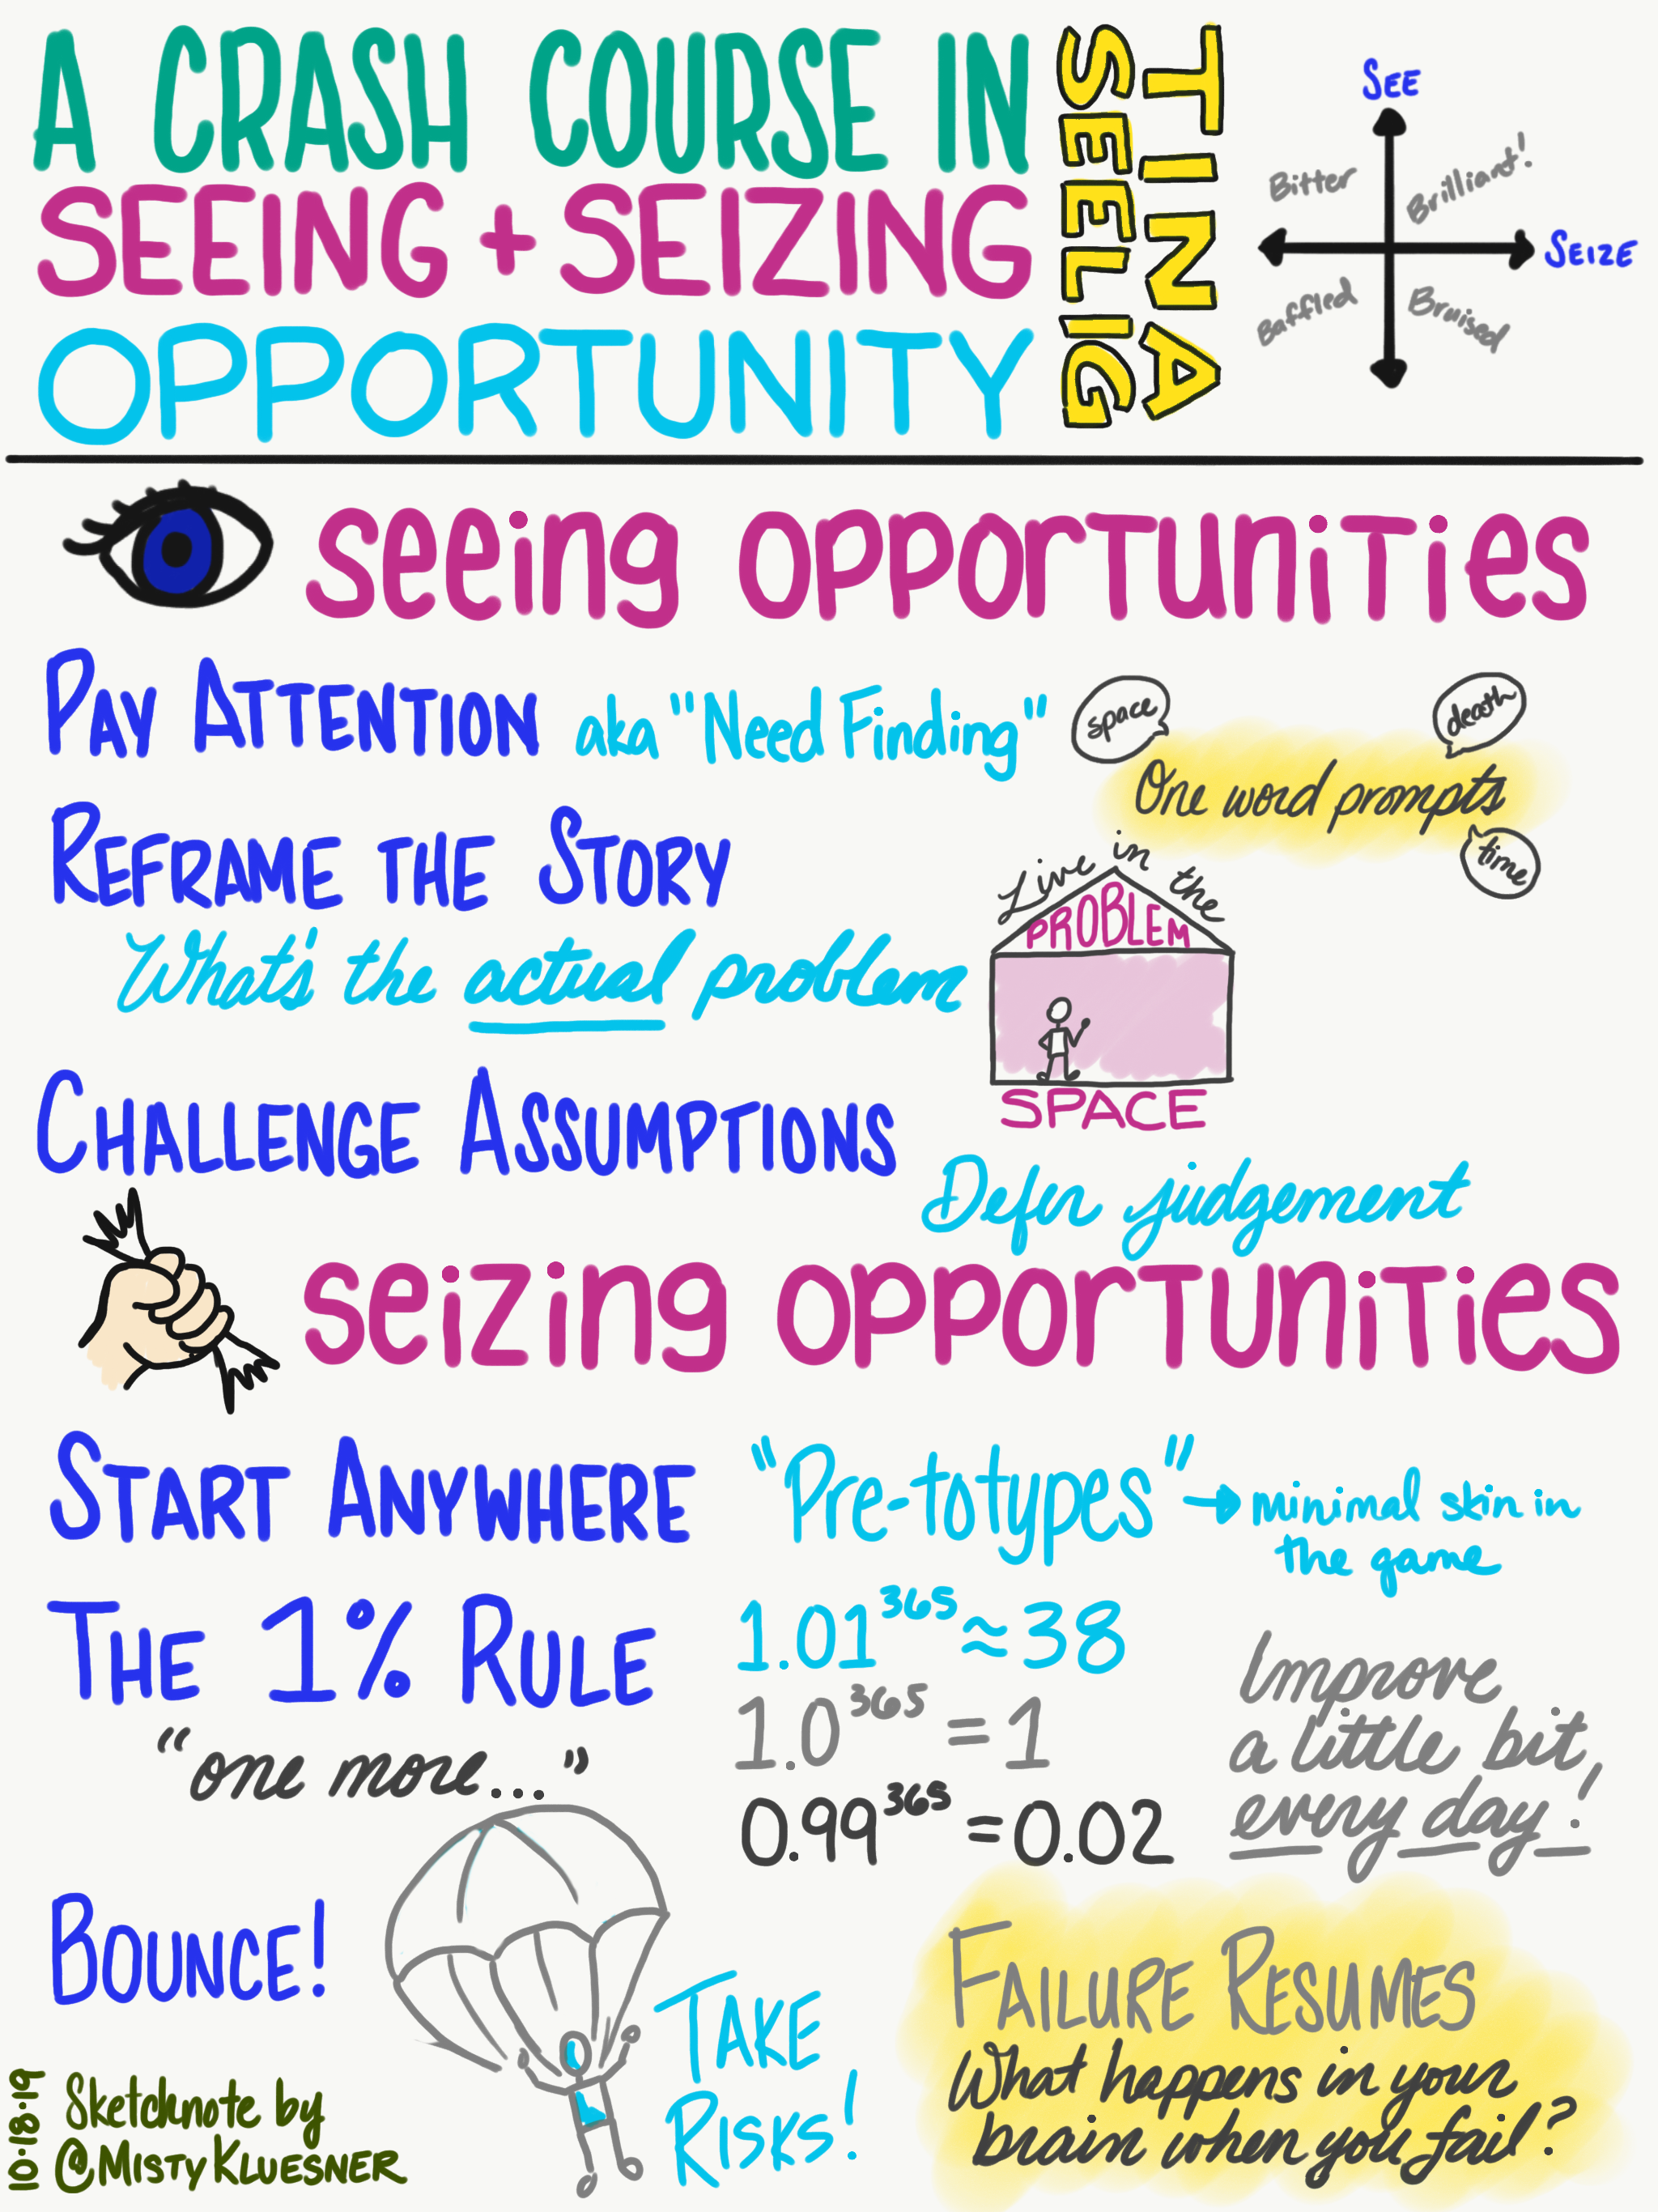 A CRASH COURSE IN
SEEING + SEIZING
OPPORTUNITY
TINA
SEELIG
SEE
Bitter
Brilliant!
SEIZE
Baffled
Bruised
seeing opportunities
PAY ATTENTION aka "Need Finding"
space
death
One word prompts
time
REFRAME THE STORY
What's the actual problem
Live in the
PROBLEM
SPACE
CHALLENGE ASSUMPTIONS
Defer judgement
seizing opportunities
START ANYWHERE "Pre-totypes" → minimal skin in
the game
THE 1% RULE
"one more..."
1.01³⁶⁵ ≈ 38
1.0³⁶⁵ = 1
0.99³⁶⁵ = 0.02
Improve
a little bit,
every day!
BOUNCE!
TAKE
RISKS!
FAILURE RESUMES
What happens in your
brain when you fail?
10·18·19
Sketchnote by
@MISTYKLUESNER